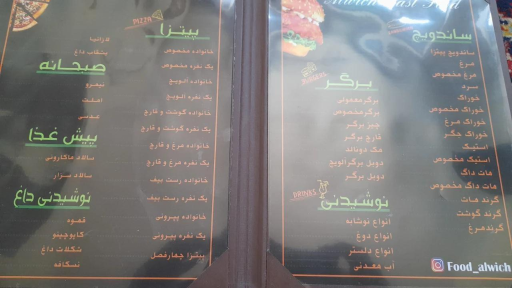 Fast Food
ساندویچ
ساندویچ پیتزا
مرغ
مرغ مخصوص
سرد
خوراک
خوراک مخصوص
خوراک مرغ
خوراک جگر
استیک
استیک مخصوص
هات داگ
هات داگ مخصوص
گرند هات
گرند گوشت
گرند مرغ
BURGERS
برگر
برگر معمولی
برگر مخصوص
چیز برگر
قارچ برگر
مک دونالد
دوبل برگر الویچ
دوبل برگر
DRINKS
نوشیدنی
انواع نوشابه
انواع دوغ
انواع دلستر
آب معدنی
Food_alwich
PIZZA
پیتزا
خانواده مخصوص
یک نفره مخصوص
خانواده الویچ
یک نفره الویچ
خانواده گوشت و قارچ
یک نفره گوشت و قارچ
خانواده مرغ و قارچ
یک نفره مرغ و قارچ
خانواده رست بیف
یک نفره رست بیف
خانواده پپرونی
یک نفره پپرونی
پیتزا چهارفصل
لازانیا
بشقاب داغ
صبحانه
نیمرو
املت
عدسی
پیش غذا
سالاد ماکارونی
سالاد سزار
نوشیدنی داغ
قهوه
کاپوچینو
شکلات داغ
نسکافه